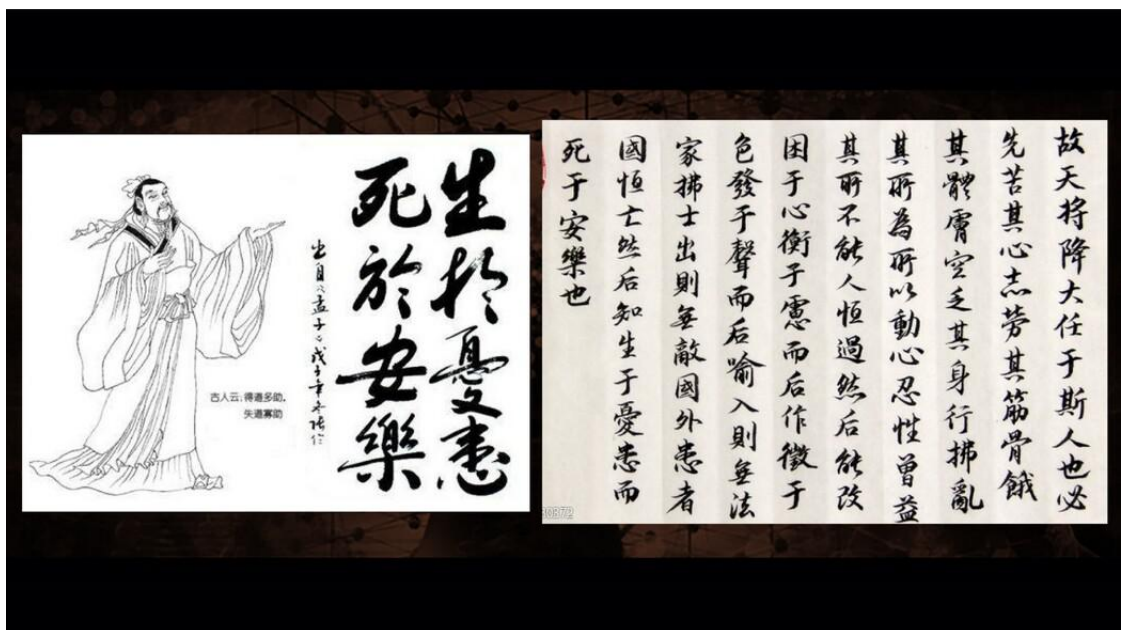 生扵憂患
死於安樂
出自《孟子》戊子年冬
古人云:得道多助,
失道寡助
故天将降大任于斯人也必
先苦其心志劳其筋骨餓
其體膚空乏其身行拂亂
其所為所以動心忍性曾益
其所不能人恒過然后能改
困于心衡于慮而后作徵于
色發于聲而后喻入則無法
家拂士出則無敵國外患者
國恒亡然后知生于憂患而
死于安樂也